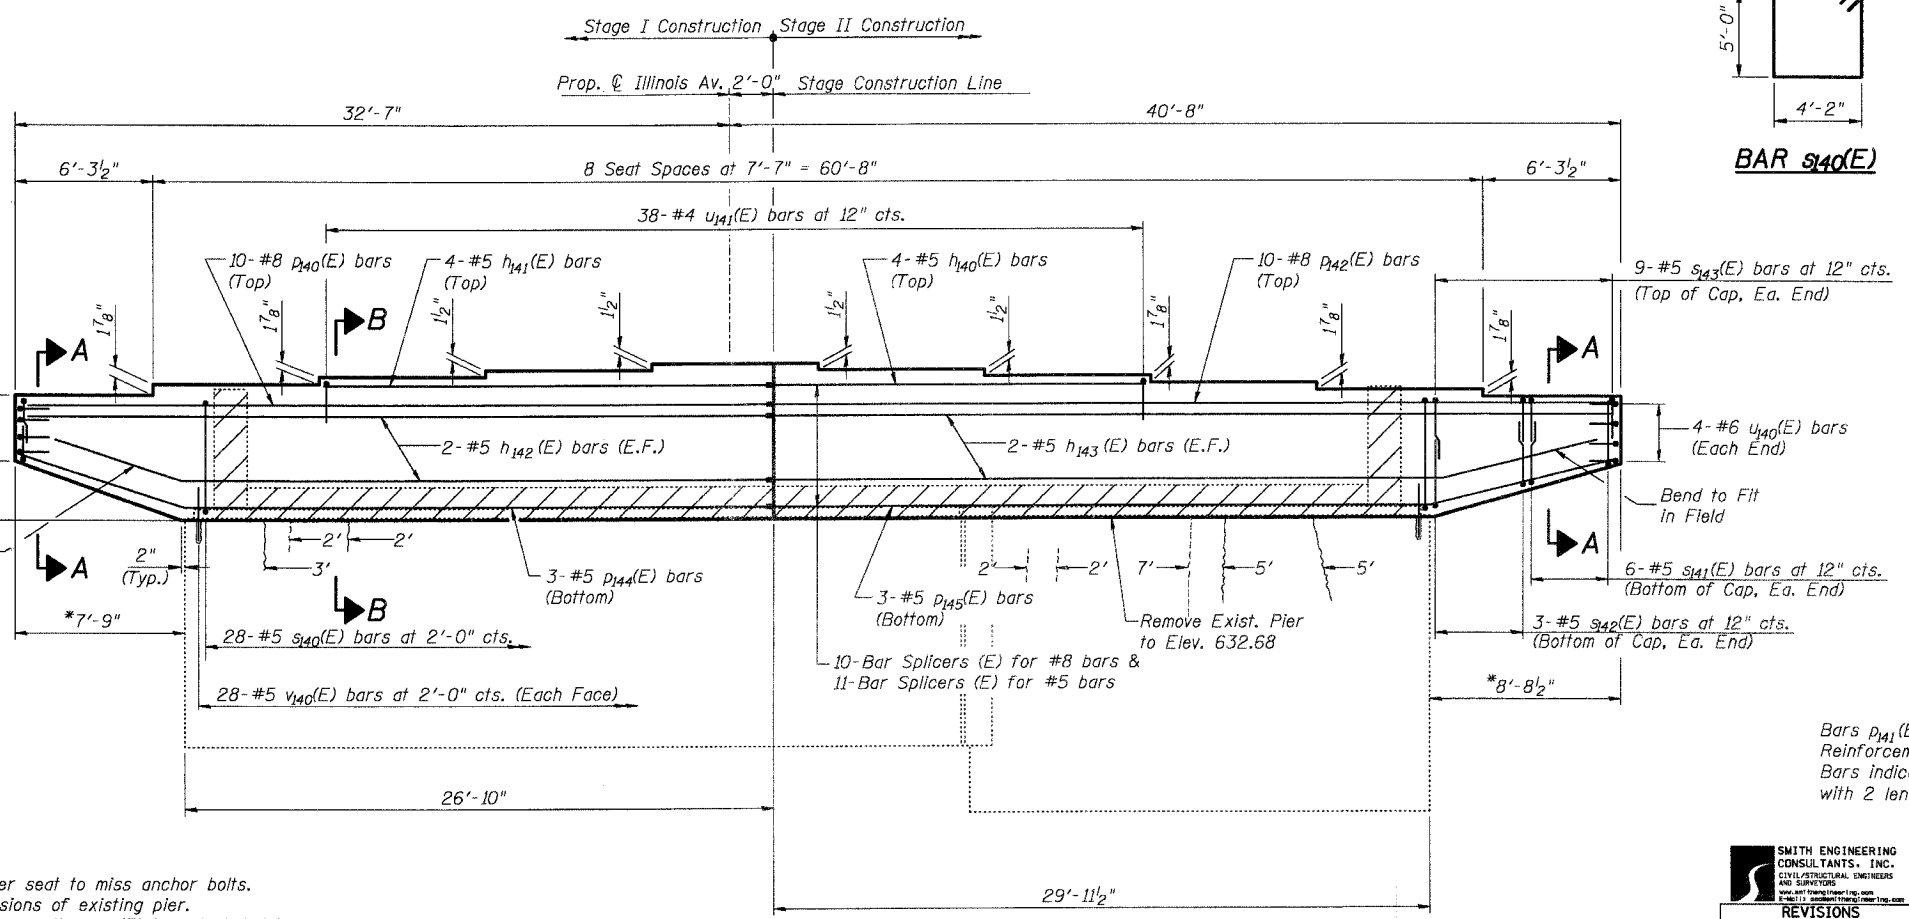 Stage I Construction Stage II Construction
Prop. ℄ Illinois Av. 2'-0" Stage Construction Line
5'-0"
4'-2"
BAR s140(E)
32'-7"
40'-8"
6'-3½"
8 Seat Spaces at 7'-7" = 60'-8"
6'-3½"
38-#4 u141(E) bars at 12" cts.
10-#8 p140(E) bars
(Top)
4-#5 h141(E) bars
(Top)
4-#5 h140(E) bars
(Top)
10-#8 p142(E) bars
(Top)
9-#5 s143(E) bars at 12" cts.
(Top of Cap, Ea. End)
1⅞"
1⅞"
1½"
1½"
1½"
1½"
1⅞"
1⅞"
1⅞"
B
A
A
2-#5 h142(E) bars (E.F.)
2-#5 h143(E) bars (E.F.)
4-#6 u140(E) bars
(Each End)
Bend to Fit
in Field
A
A
B
2"
(Typ.)
2'
2'
3'
2'
2'
7'
5'
5'
3-#5 p144(E) bars
(Bottom)
3-#5 p145(E) bars
(Bottom)
Remove Exist. Pier
to Elev. 632.68
6-#5 s141(E) bars at 12" cts.
(Bottom of Cap, Ea. End)
3-#5 s142(E) bars at 12" cts.
(Bottom of Cap, Ea. End)
*7'-9"
28-#5 s140(E) bars at 2'-0" cts.
10-Bar Splicers (E) for #8 bars &
11-Bar Splicers (E) for #5 bars
28-#5 v140(E) bars at 2'-0" cts. (Each Face)
*8'-8½"
26'-10"
29'-11½"
Bars p141(E
Reinforcem
Bars indic
with 2 len
er seat to miss anchor bolts.
sions of existing pier.
SMITH ENGINEERING
CONSULTANTS, INC.
CIVIL/STRUCTURAL ENGINEERS
AND SURVEYORS
REVISIONS